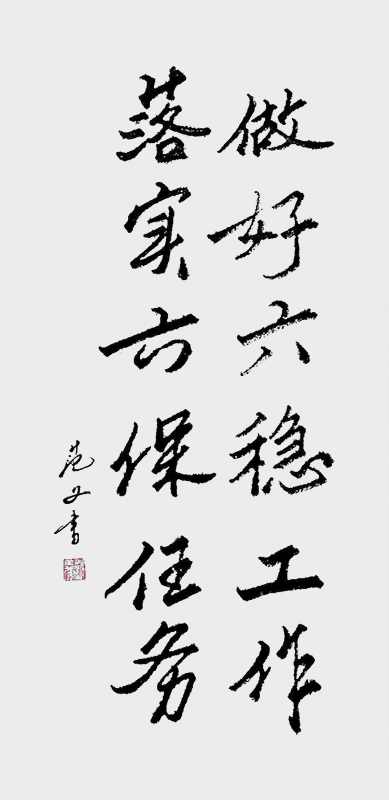 做好六稳工作
落实六保任务
范文书